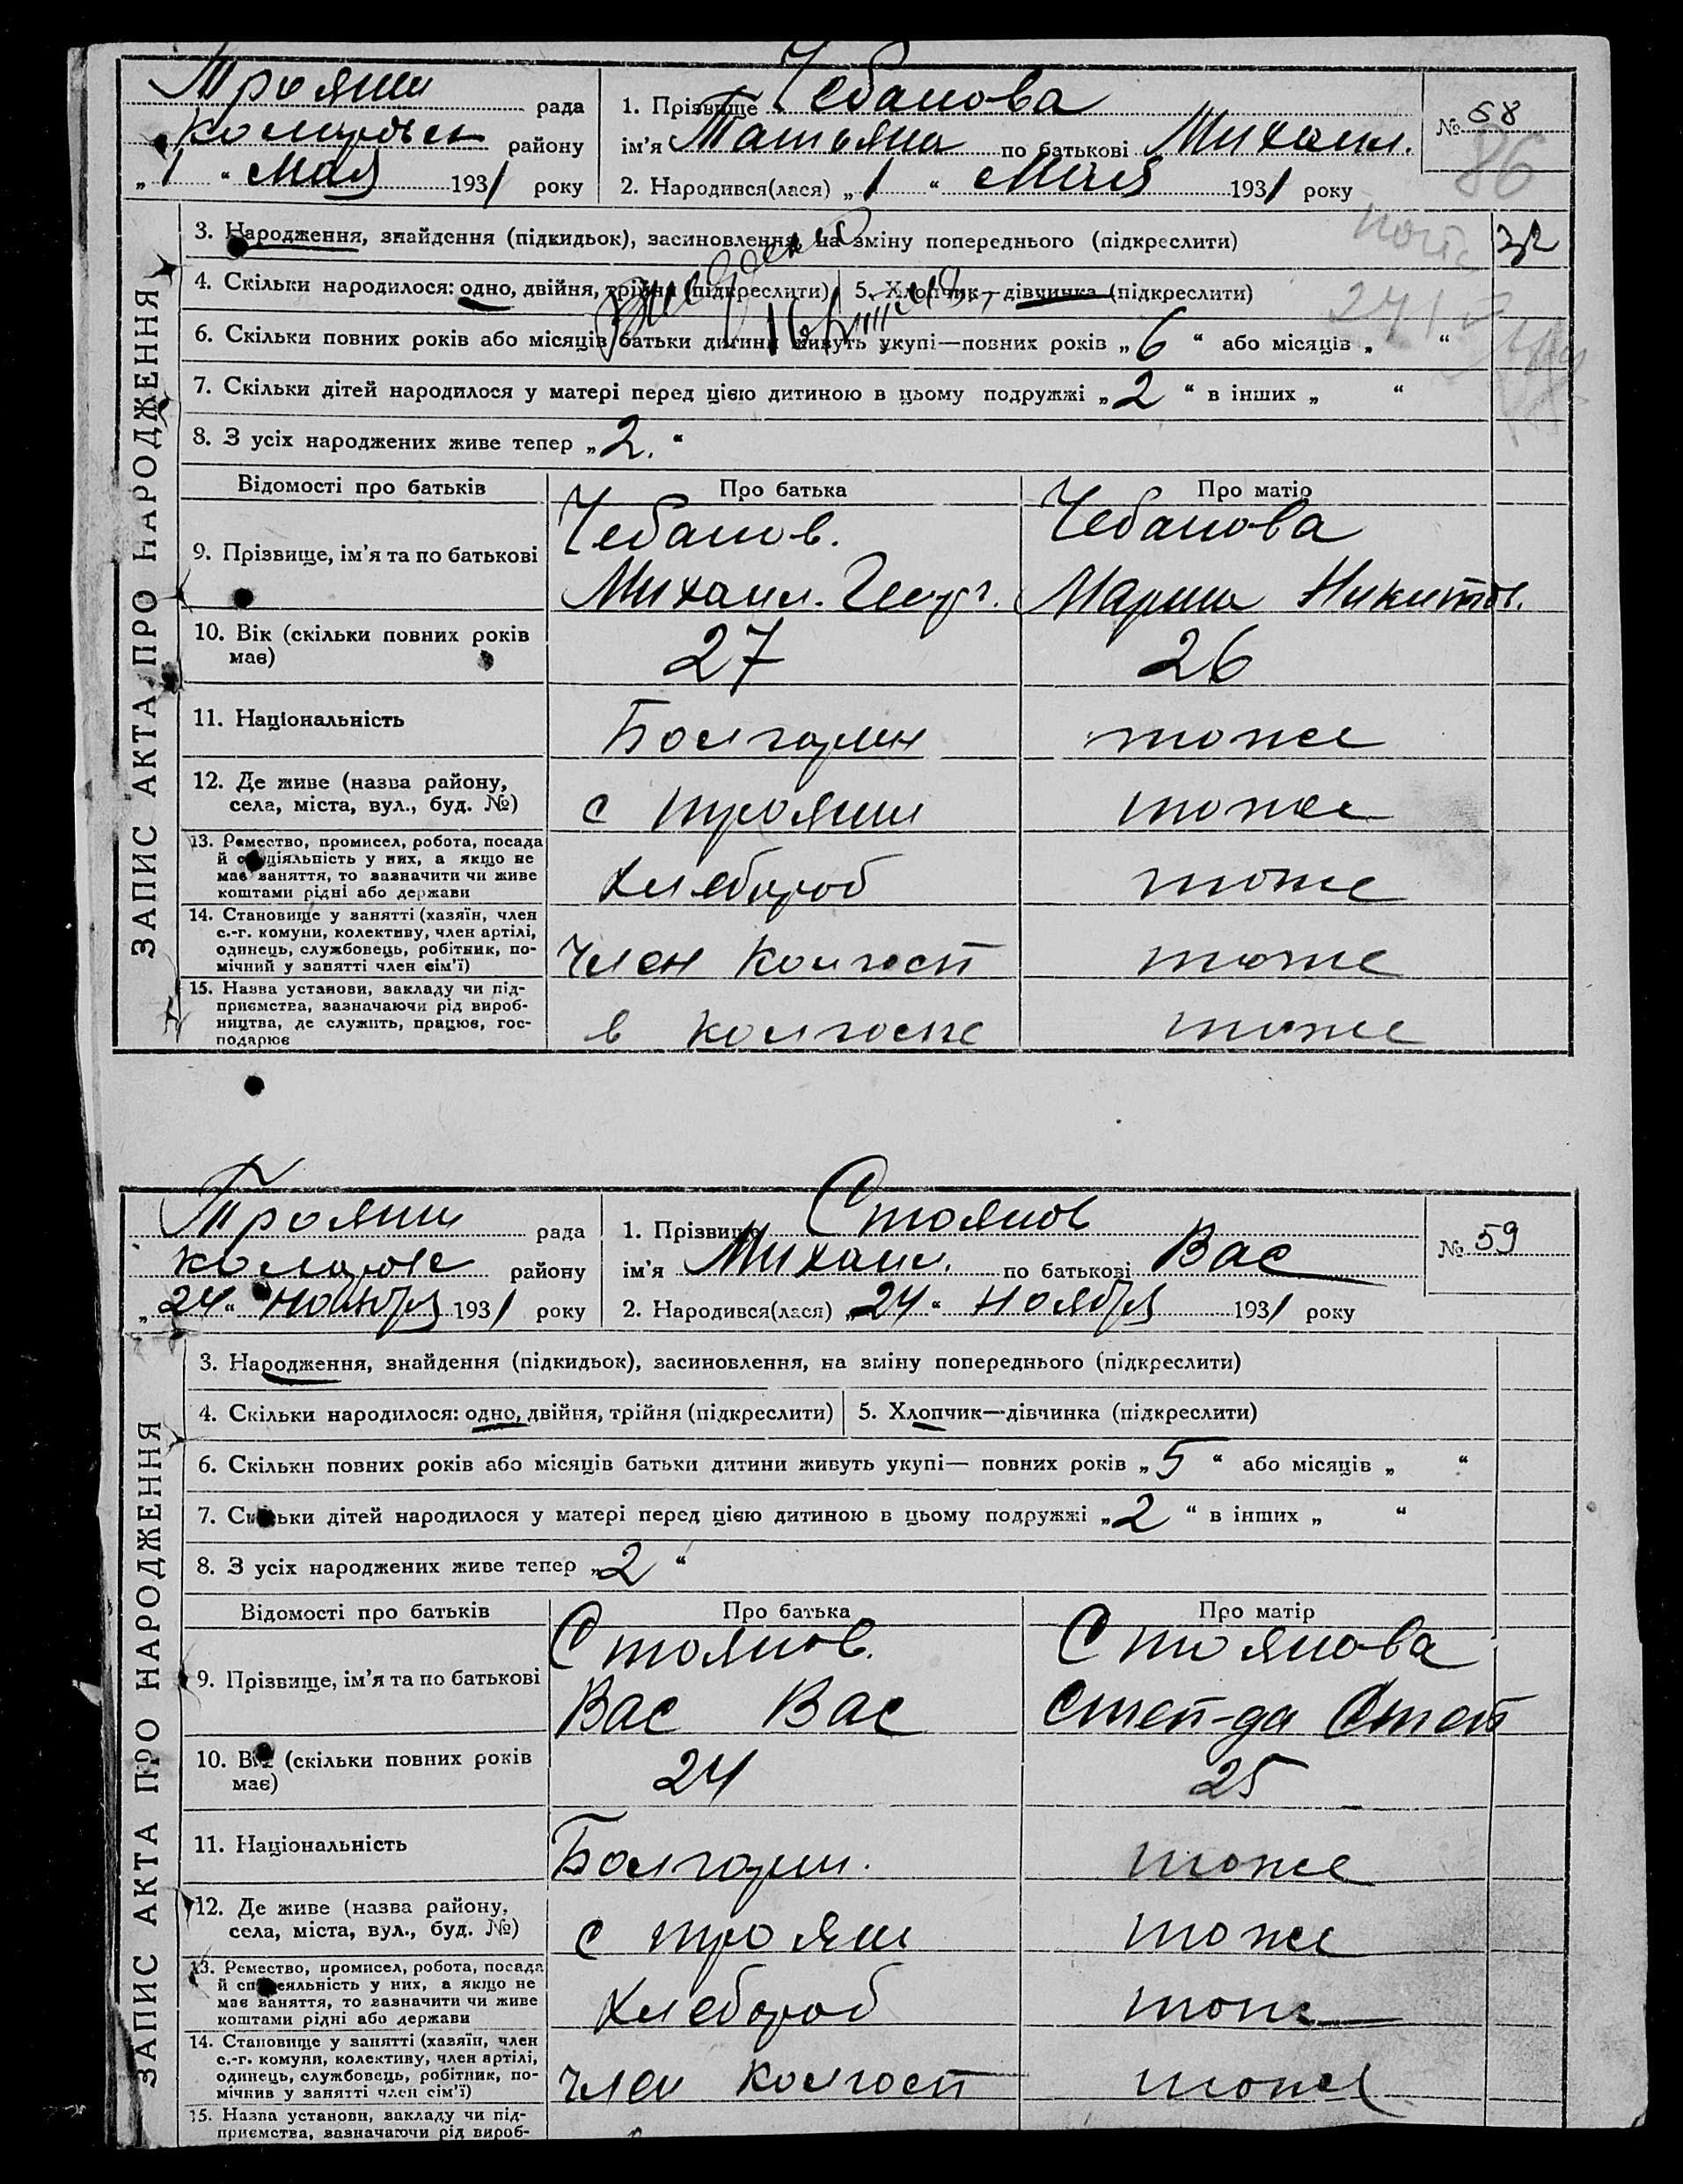 Трояни рада
району
„1“ Мая 1931 року
1. Прізвище Чебанова
ім’я Татьяна по батькові Михаил.
2. Народився(лася) „1“ Мая 1931 року
№ 58
86
ЗАПИС АКТА ПРО НАРОДЖЕННЯ
3. Народження, знайдення (підкидьок), засиновлення, на зміну попереднього (підкреслити)
4. Скільки народилося: одно, двійня, трійня (підкреслити)
5. Хлопчик—дівчинка (підкреслити)
6. Скільки повних років або місяців батьки дитини живуть укупі—повних років „6“ або місяців „ “
7. Скільки дітей народилося у матері перед цією дитиною в цьому подружжі „2“ в інших „ “
8. З усіх народжених живе тепер „2.“
Відомості про батьків
Про батька
Про матір
9. Прізвище, ім’я та по батькові
Чебанов.
Михаил. Георг.
Чебанова
Мария Никитов.
10. Вік (скільки повних років
має)
27
26
11. Національність
Болгарин
тоже
12. Де живе (назва району,
села, міста, вул., буд. №)
с Трояни
тоже
13. Ремество, промисел, робота, посада
й спеціяльність у них, а якщо не
має заняття, то зазначити чи живе
коштами рідні або держави
Хлебороб
тоже
14. Становище у занятті (хазяїн, член
с.-г. комуни, колективу, член артілі,
одинець, службовець, робітник, по-
мічний у занятті член сім’ї)
Член колгосп
тоже
15. Назва установи, закладу чи під-
приємства, зазначаючи рід вироб-
ництва, де служить, працює, гос-
подарює
в колгоспе
тоже
Трояни рада
району
„24“ ноября 1931 року
1. Прізвище Стоянов
ім’я Михаил. по батькові Вас
2. Народився(лася) „24“ ноября 1931 року
№ 59
ЗАПИС АКТА ПРО НАРОДЖЕННЯ
3. Народження, знайдення (підкидьок), засиновлення, на зміну попереднього (підкреслити)
4. Скільки народилося: одно, двійня, трійня (підкреслити)
5. Хлопчик—дівчинка (підкреслити)
6. Скільки повних років або місяців батьки дитини живуть укупі— повних років „5“ або місяців „ “
7. Скільки дітей народилося у матері перед цією дитиною в цьому подружжі „2“ в інших „ “
8. З усіх народжених живе тепер „2“
Відомості про батьків
Про батька
Про матір
9. Прізвище, ім’я та по батькові
Стоянов.
Вас Вас
Стоянова
Степ-да Степ
10. Вік (скільки повних років
має)
24
25
11. Національність
Болгарин.
тоже
12. Де живе (назва району,
села, міста, вул., буд. №)
с Трояни
тоже
13. Ремество, промисел, робота, посада
й спеціяльність у них, а якщо не
має заняття, то зазначити чи живе
коштами рідні або держави
Хлебороб
тоже
14. Становище у занятті (хазяїн, член
с.-г. комуни, колективу, член артілі,
одинець, службовець, робітник, по-
мічний у занятті член сім’ї)
член колгосп
тоже
15. Назва установи, закладу чи під-
приємства, зазначаючи рід вироб-